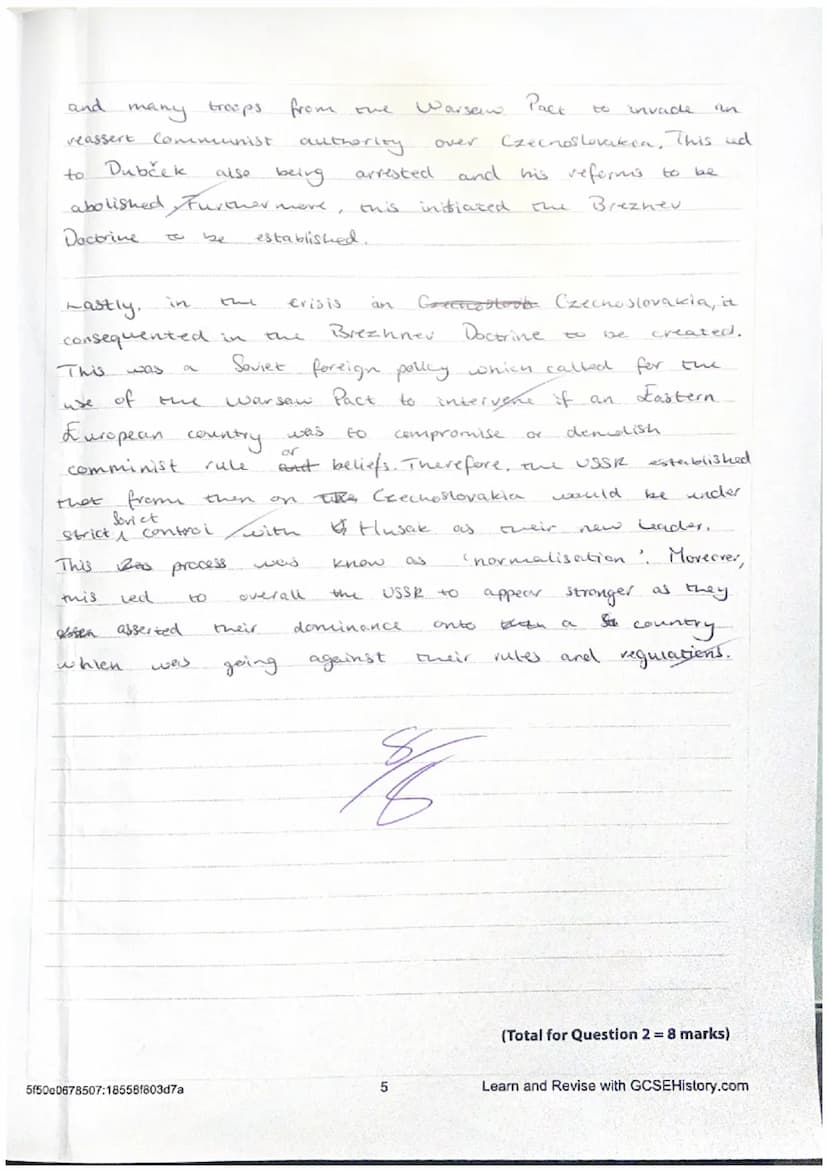 and many troops from the Warsaw Pact to invade an
reassert Communist authority over Czechoslovakia. This led
to Dubček also being arrested and his reforms to be
abolished. Furthermore, this initiated the Breznev
Doctrine to be established.
Lastly, in the crisis in Czechoslovakia, it
consequented in the Brezhnev Doctrine to be created.
This was a Soviet foreign policy which called for the
use of the Warsaw Pact to intervene if an Eastern
European country was to compromise or demolish
comminist rule or beliefs. Therefore, the USSR established
that from then on Czechoslovakia would be under
strict Soviet control with Husak as their new leader.
This process was know as 'normalisation'. Moreover,
this led to overall the USSR to appear stronger as they
asserted their dominance onto a country
which was going against their rules and regulations.
8/8
(Total for Question 2 = 8 marks)
5f50e0678507:18556f803d7a
5
Learn and Revise with GCSEHistory.com